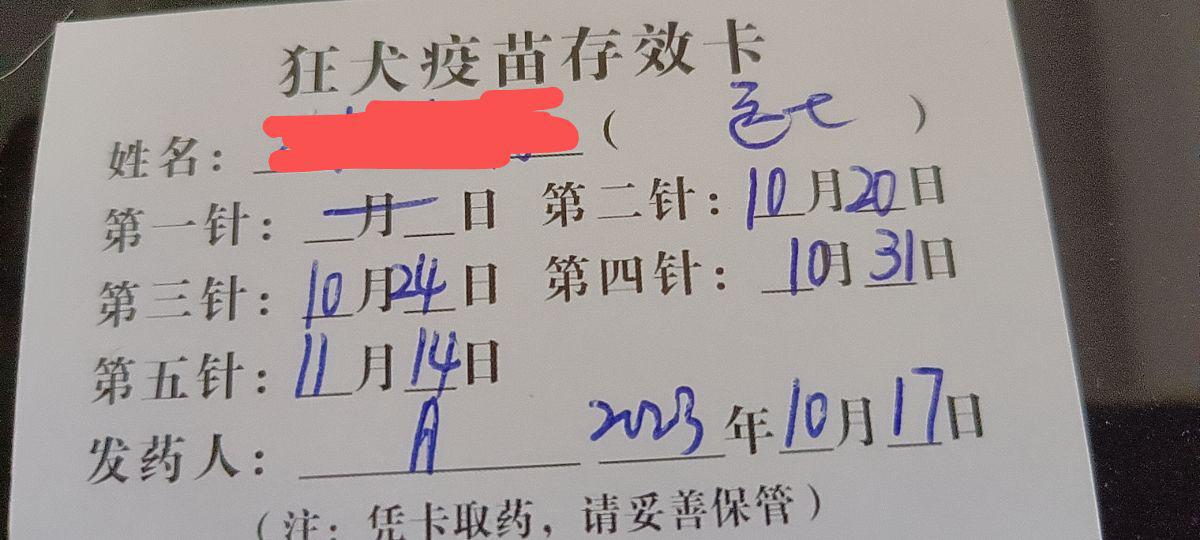 狂犬疫苗存效卡
姓名：（ ）
第一针：月 日 第二针：10月20日
第三针：10月24日 第四针：10月31日
第五针：11月14日
发药人： 2023年10月17日
（注：凭卡取药，请妥善保管）